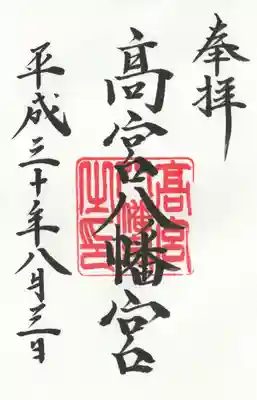 奉拝
髙宮八幡宮
髙宮八幡宮之印
平成三十年八月三日